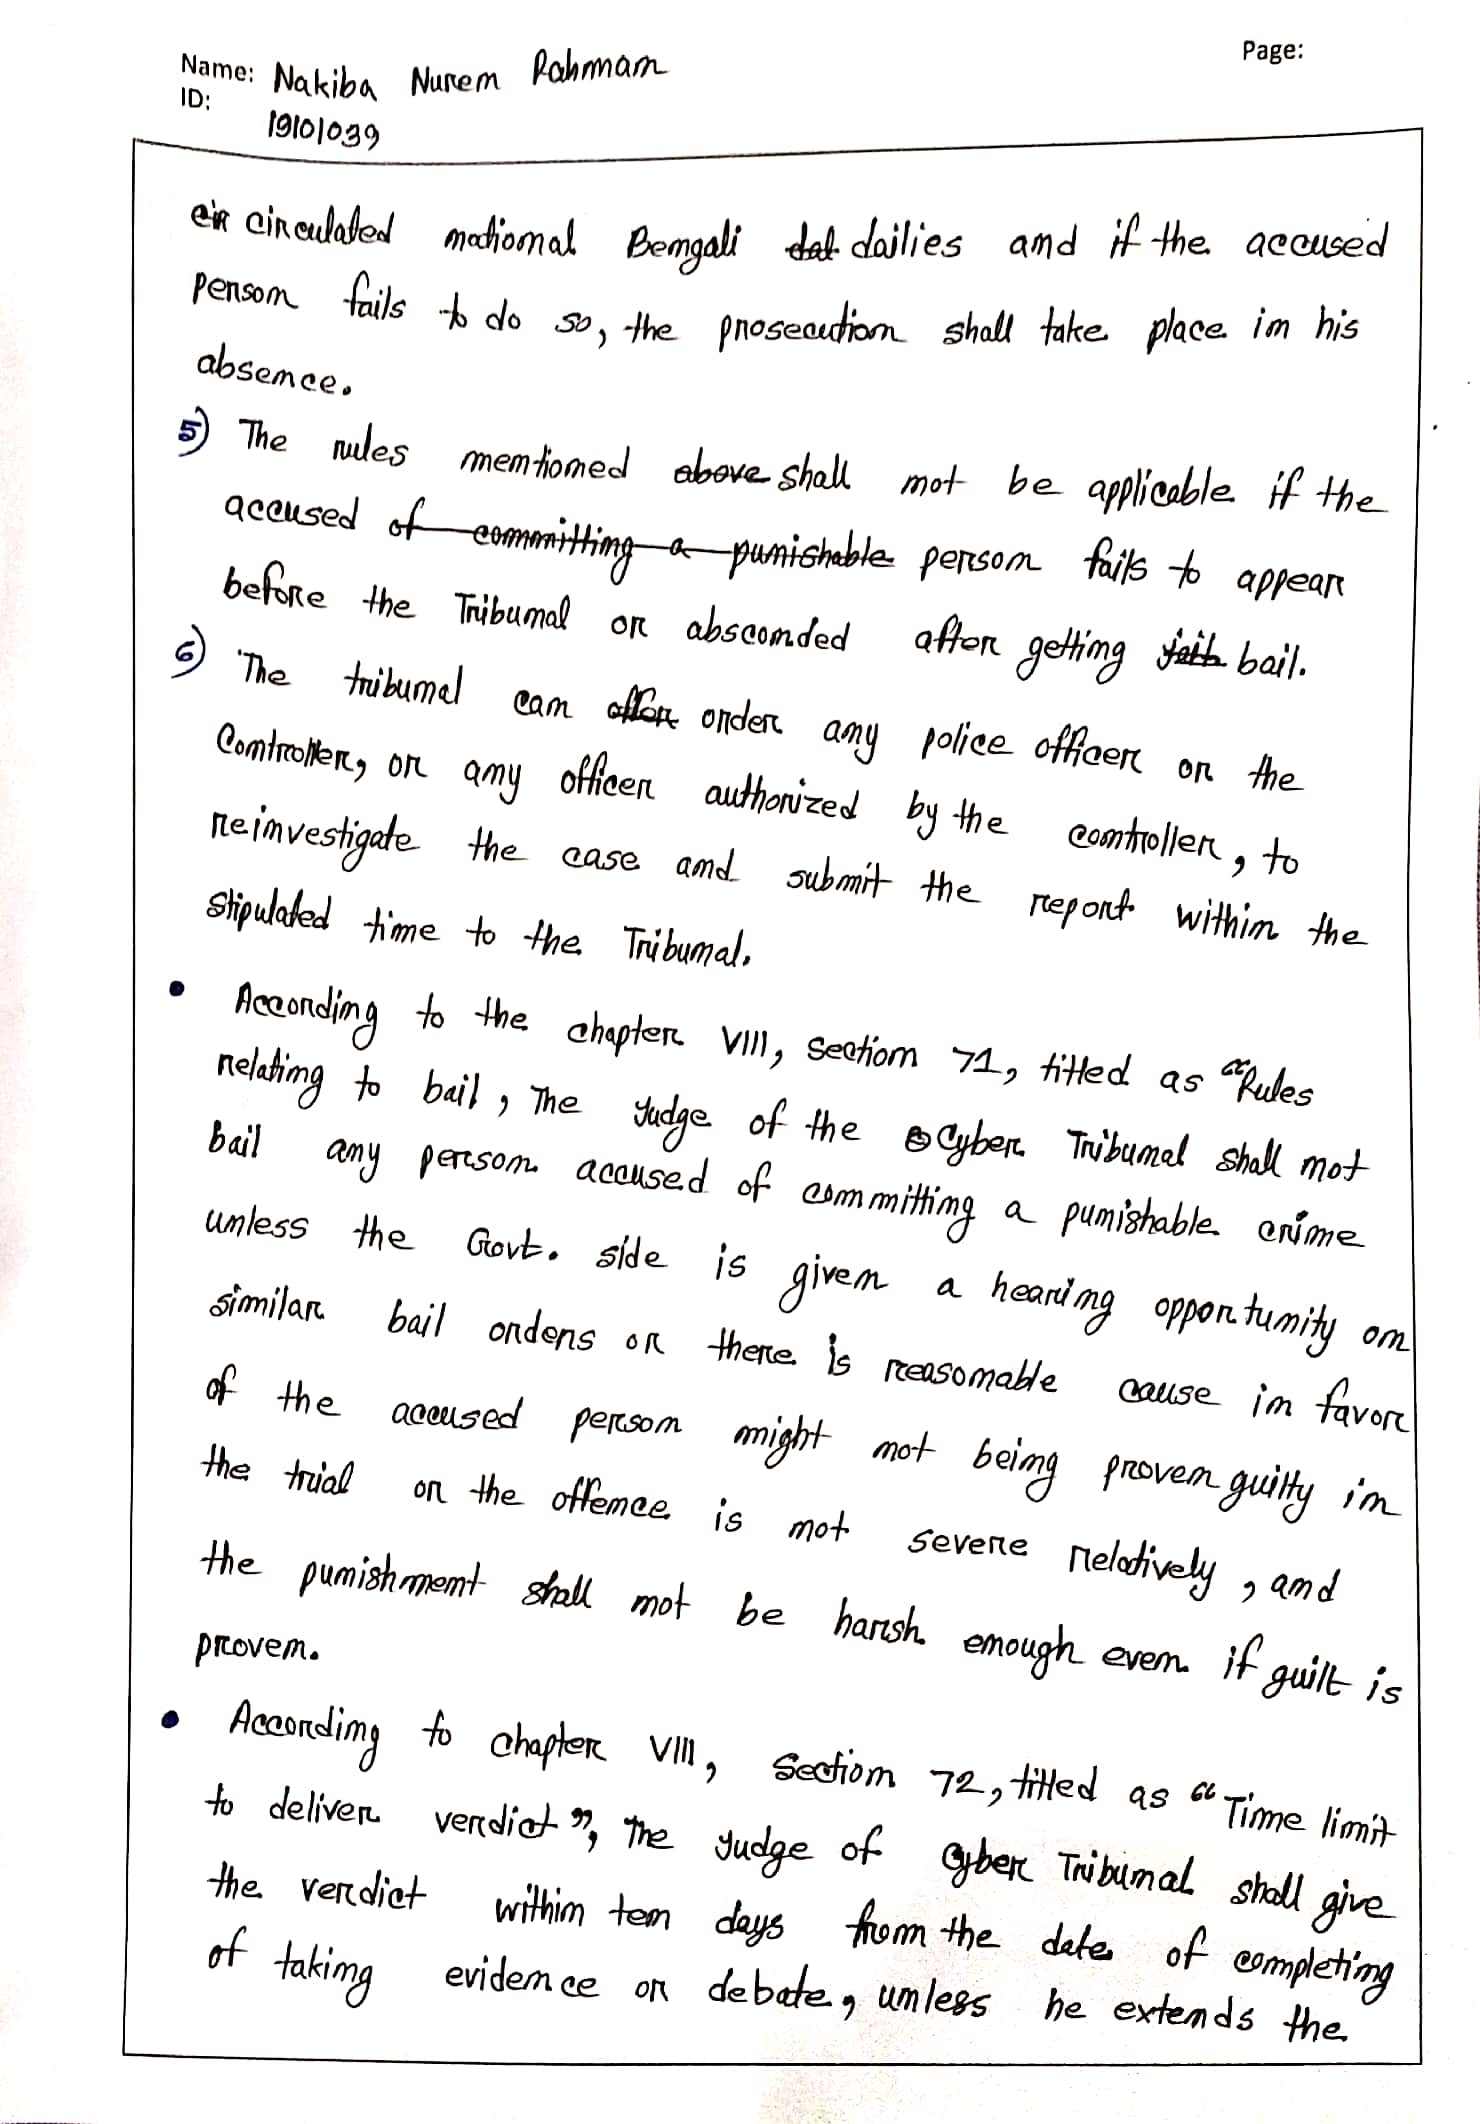 Page:
Name: Nakiba Nurem Rahman
ID: 19101039
cir circulated national Bengali dat dailies and if the accused
person fails to do so, the prosecution shall take place in his
absence.
5) The rules mentioned above shall not be applicable if the
accused of committing a punishable person fails to appear
before the Tribunal or absconded after getting bail.
6) The tribunal can order any police officer or the
Controller, or any officer authorized by the controller, to
reinvestigate the case and submit the report within the
stipulated time to the Tribunal.
• According to the chapter VIII, section 71, titled as "Rules
relating to bail, The Judge of the Cyber Tribunal shall not
bail any person accused of committing a punishable crime
unless the Govt. side is given a hearing opportunity on
similar bail orders or there is reasonable cause in favor
of the accused person might not being proven guilty in
the trial or the offence is not severe relatively, and
the punishment shall not be harsh enough even if guilt is
proven.
• According to chapter VIII, Section 72, titled as "Time limit
to deliver verdict", The Judge of Cyber Tribunal shall give
the verdict within ten days from the date of completing
of taking evidence or debate, unless he extends the